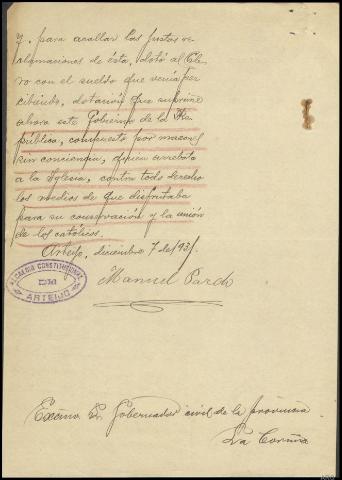 y para acallar las justas re-
clamaciones de ésta, dotó al Cle-
ro con el sueldo que venía per
cibiendo, dotación que suprime
ahora este Gobierno de la Re-
pública, compuesto por masones
sin conciencia, quien arrebata
a la Iglesia, contra todo derecho
los medios de que disfrutaba
para su conservación y la unión
de los católicos.
Arteijo, diciembre 7 de 1931.
Manuel Pardo
ALCALDIA CONSTITUCIONAL
ARTEIJO
Excmo Sr Gobernador civil de la provincia
La Coruña